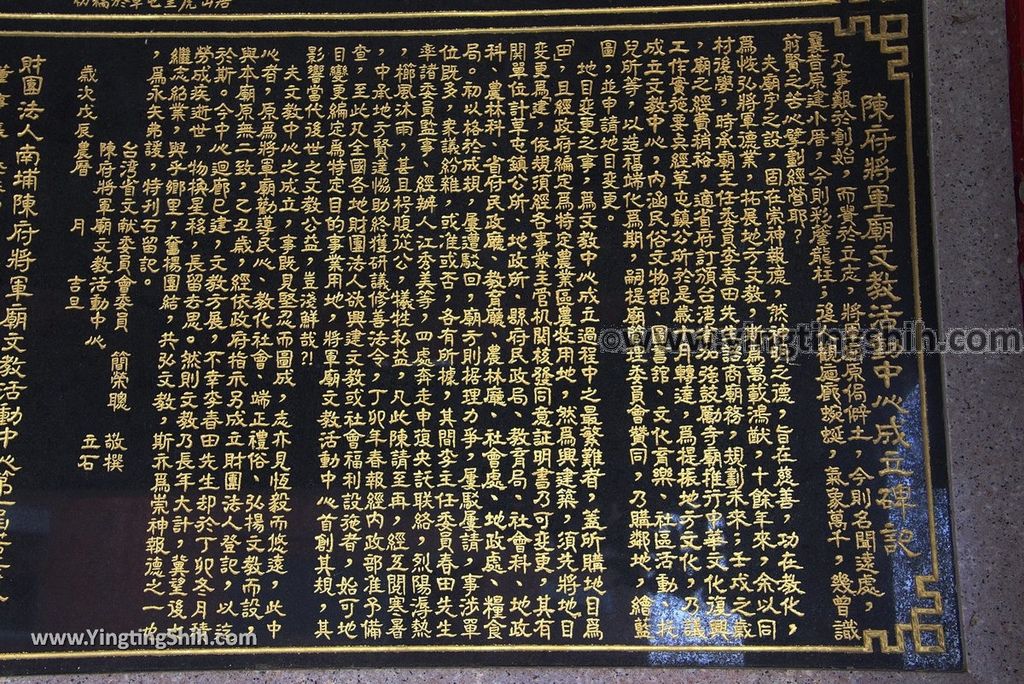 陳府將軍廟文教活動中心成立碑記
凡事艱於創始，而貴於立志，將軍廟原侷僻土，今則名聞遠處，
曩昔原建小厝，今則彩鰲龍柱，追觀迴廊蜿蜒，氣象萬千，幾曾識
前賢之苦心擘劃經營耶？
夫廟宇之設，固在崇神報德，然神明之德，旨在慈善，功在教化，
為恢弘將軍德業，拓展地方文教，為萬載鴻猷，十餘年來，余以同
村後學，時承廟主任委員李春田先諮商廟務，規劃未來；壬戌之歲
，廟之經費稍裕，適省府訂頒台灣加強鼓勵寺廟推行中華文化復興
工作實施要點經草屯鎮公所於是歲十月轉達，為提振地方文化，乃議
成立文教中心，內涵民俗文物館、圖書館、文化育樂、社區活動、托
兒所等，以造福端化為期，嗣提廟管理委員會贊同，乃購鄰地，繪藍
圖，並申請地目變更。
地目變更之事，為文教中心成立過程中之最繁難者，蓋所購地目為
「田」，且經政府編定為特定農業區農牧用地，然為興建築，須先將地目
變更為建，依規須經各事業主管机關核發同意証明書乃可變更，其有
關單位計草屯鎮公所、地政所、縣府民政局、教育局、社會科、地政
科、農林科、省府民政廳、教育廳、農林廳、社會處、地政處、糧食
局。初以格於成規，屢遭駁回，廟方則据理力爭，屢駁屢請，事涉單
位既多，衆議紛雜，或准或否，各有所據，其間李主任委員春田先生
率諸委員監事、經辦人江秀美等，四處奔走申復央託聯絡，烈陽溽熱
，櫛風沐雨，甚且枵腹從公，犧牲私益，凡此陳請至再，經五閱寒暑
，中承地方賢達協助終獲研議修善法令，丁卯年春報經內政部准予備
查，至此凡全國各地財團法人欲興建文教或社會福利設施者，始可地
目變更編定為特定目的事業用地，將軍廟文教活動中心首創其規，其
影響當代後世之文教公益，豈淺鮮哉?!
夫文教中心之成立，事既見堅忍而圖成，志亦見恆毅而悠遠，此中
心者，原為將軍廟勸導民心、教化社會、端正禮俗、弘揚文教而設，
與本廟原無二致，乙丑歲，經依政府指示另成立財團法人登記，以迄
於斯。今中心迴廊已建，文教方展，不幸李春田先生卻於丁卯冬月積
勞成疾逝世，物換星移，長留去思。然則文教乃長年大計，冀望後之
繼志紹業，與乎鄉里，奮揚團結，共弘文教，斯亦為崇神報德之一功
，為永天弗諼，特刊石留記。
台灣省文獻委員會委員 簡榮聰 敬撰
陳府將軍廟文教活動中心 立石
歲次戊辰農曆 月 吉旦
財團法人南埔陳府將軍廟文教活動中心第
©www.YingtingShih.com
www.YingtingShih.com